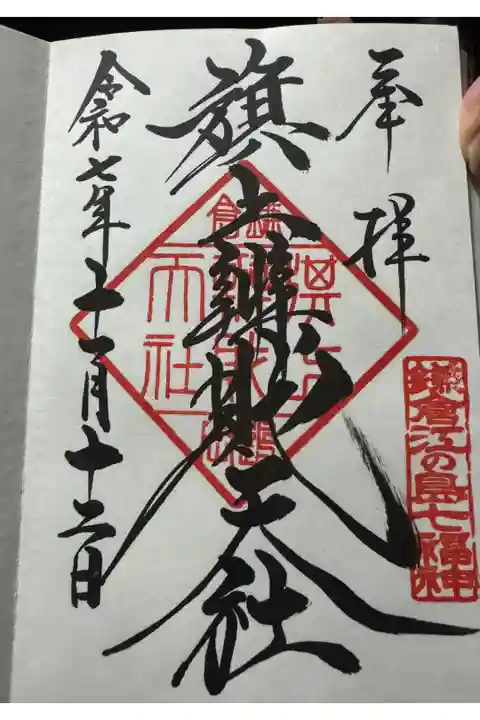 奉拝
鎌倉江の島七福神
旗上辨財天社
令和七年十一月十三日